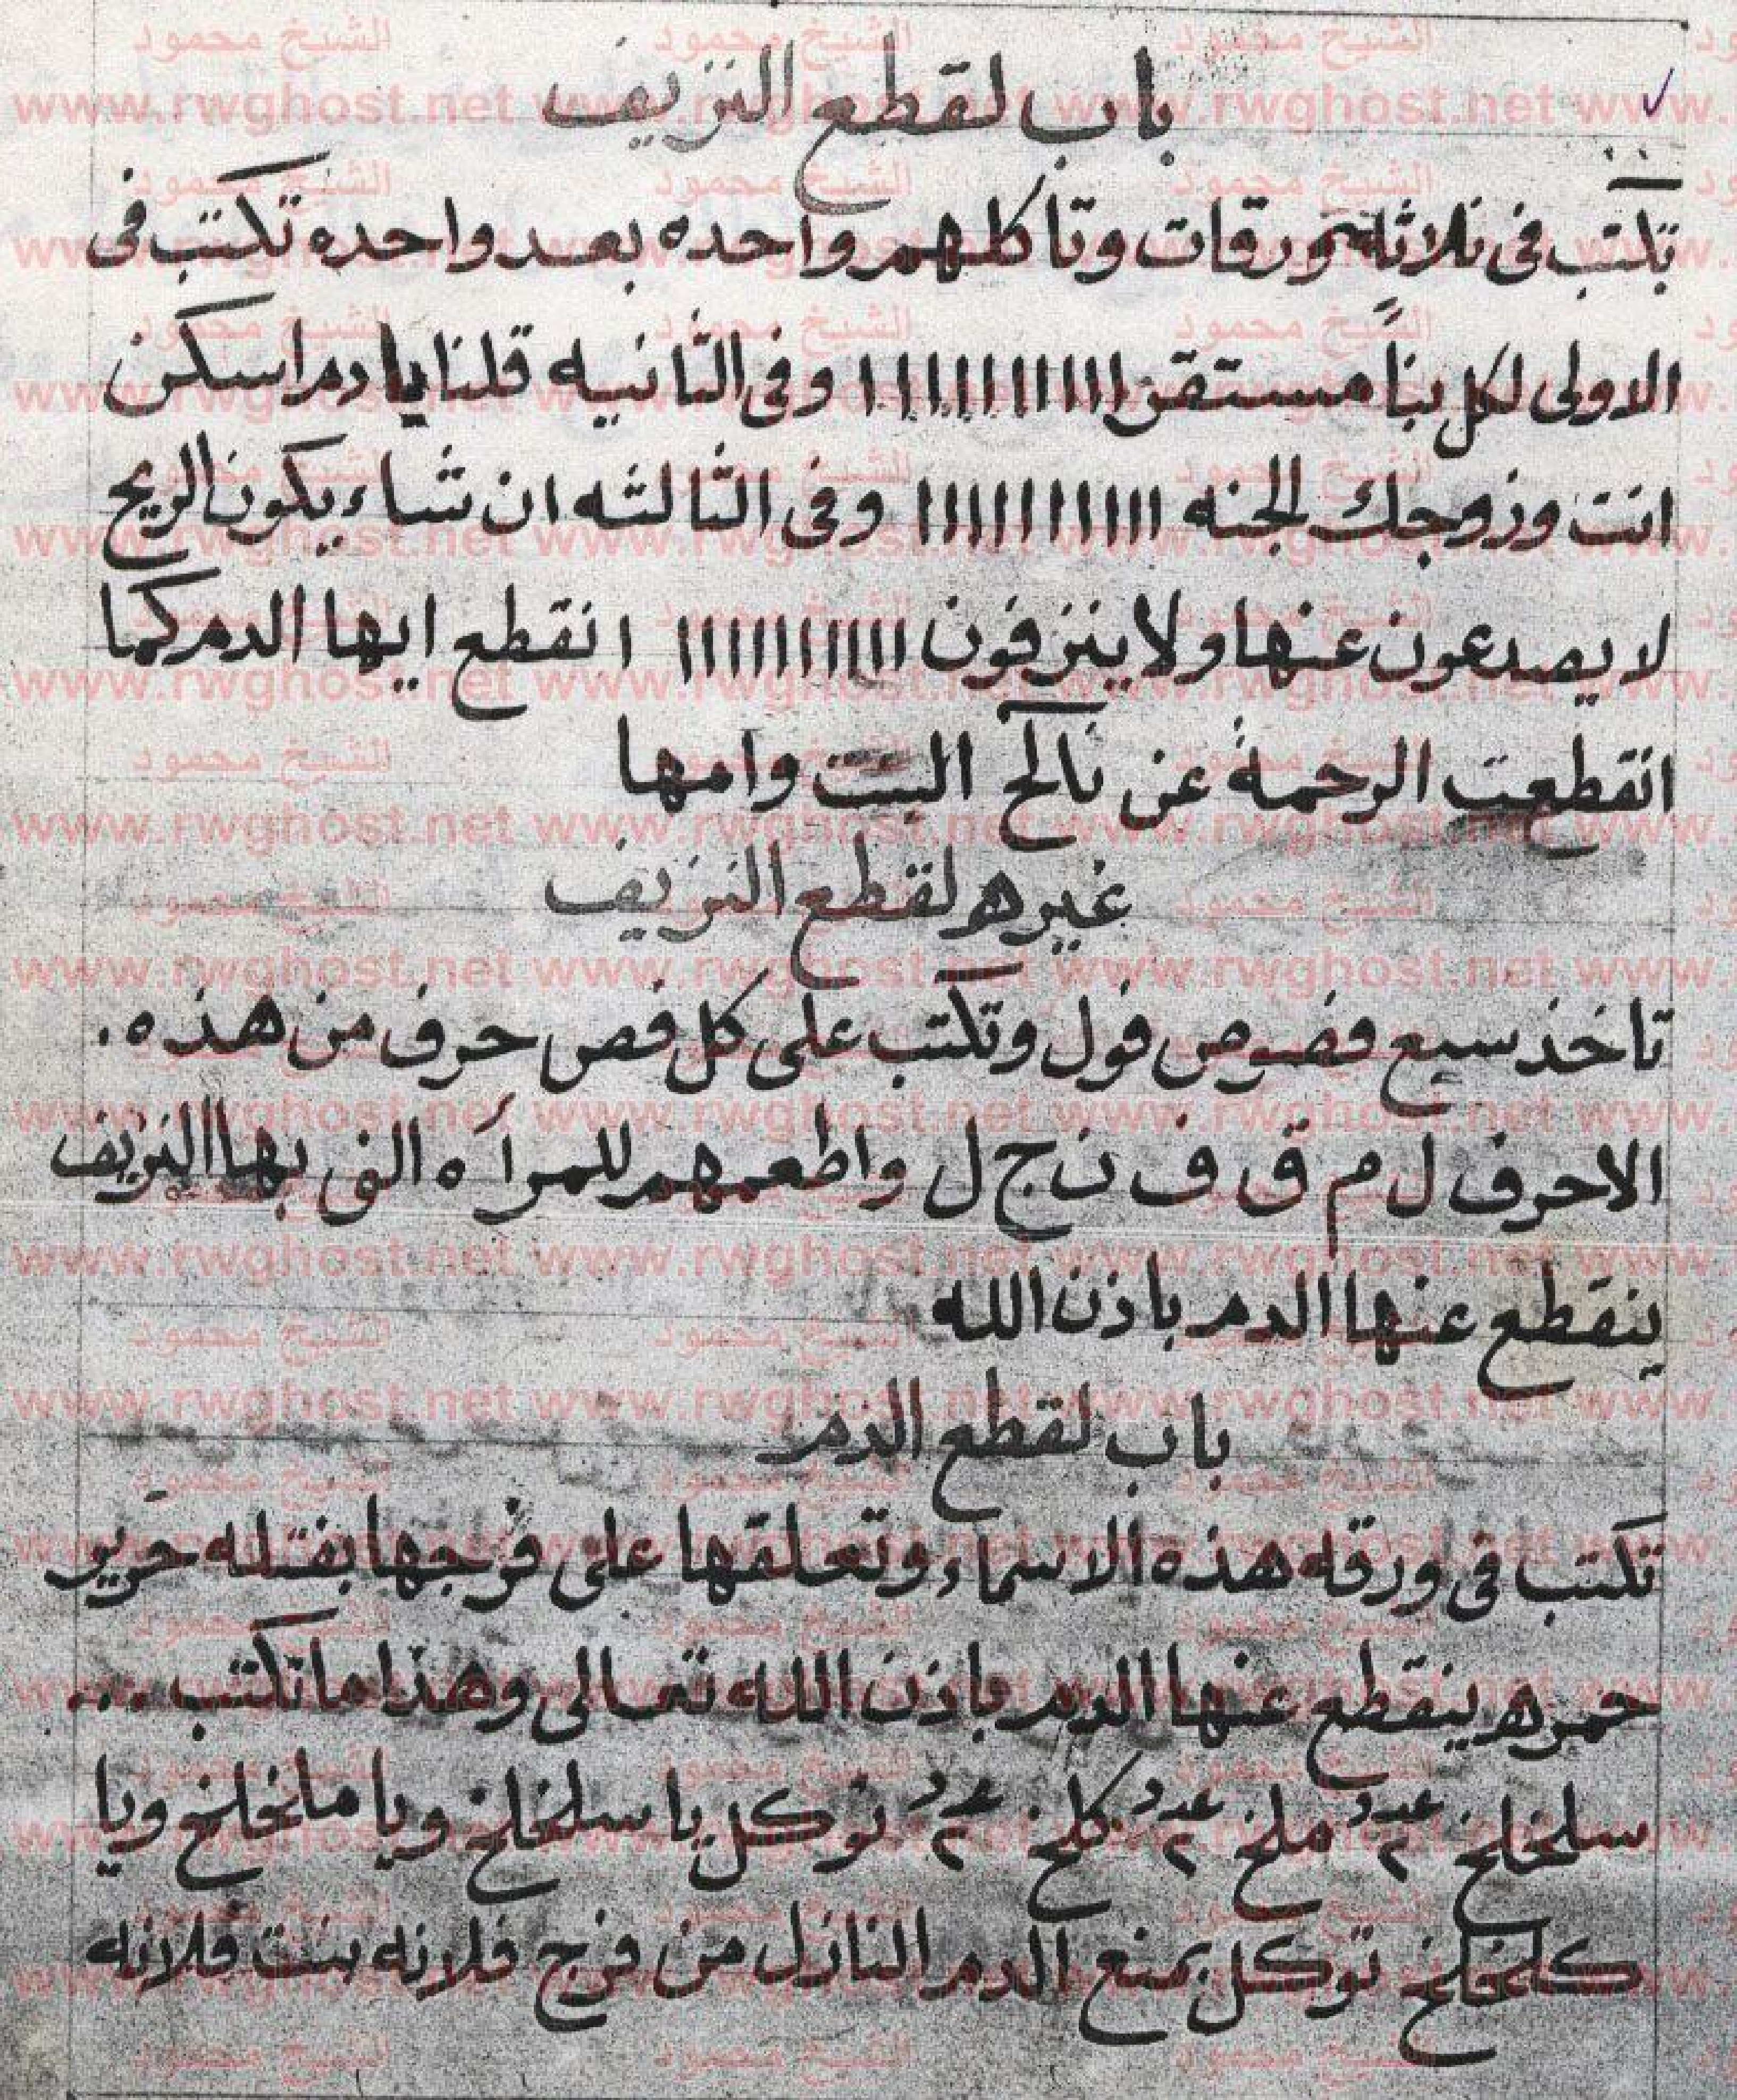 باب لقطع النزيف
تكتب فى ثلاثة ورقات وتاكلهم واحده بعد واحده تكتب فى
الاولى لكل نبأ مستقر ااااااااااا وفى الثانيه قلنا يادم اسكن
انت وزوجك الجنه ااااااااااا وفى الثالثه ان شاء يكون الريح
لا يصدعون عنها ولا ينزفون ااااااااااا انقطع ايها الدم كما
انقطعت الرحمة عن ناكح البنت وامها
غيره لقطع النزيف
تاخذ سبع فصوص فول وتكتب على كل فص حرف من هذه .
الاحرف ل م ق ف ن ج ل واطعمهم للمرأه التى بها النزيف
ينقطع عنها الدم باذن الله
باب لقطع الدم
تكتب فى ورقه هذه الاسماء وتعلقها على فرجها بفتله حرير
حمره ينقطع عنها الدم باذن الله تعالى وهذا ما تكتب ...
سلخلخ عدد ٢ ملخ عدد ٢ كلخ عدد ٢ توكل يا سلخلخ ويا ملخلخ ويا
كلخلخ توكل بمنع الدم النازل من فرج فلانه بنت فلانه
الشيخ محمود
www.rwghost.net